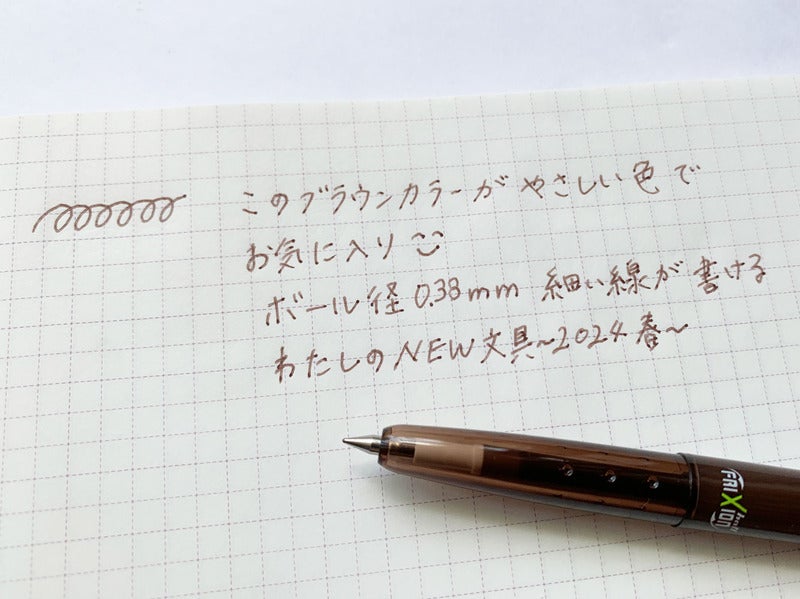 このブラウンカラーが やさしい色で
お気に入り
ボール径 0.38mm 細い線が 書ける
わたしのNEW文具~2024春~
FRIXION